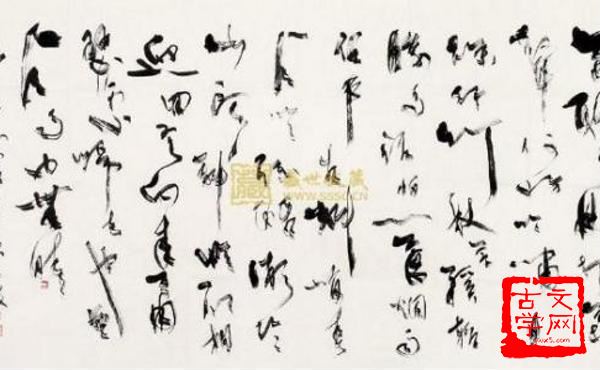 莫听穿林打叶
声何妨吟啸且
徐行竹杖芒鞋轻
胜马谁怕一蓑烟雨
任平生料峭春
风吹酒醒微冷
山头斜照却相
迎回首向来萧
瑟处归去也无
风雨也无晴
盛世收藏
WWW.SSSC.CN
古文
学网